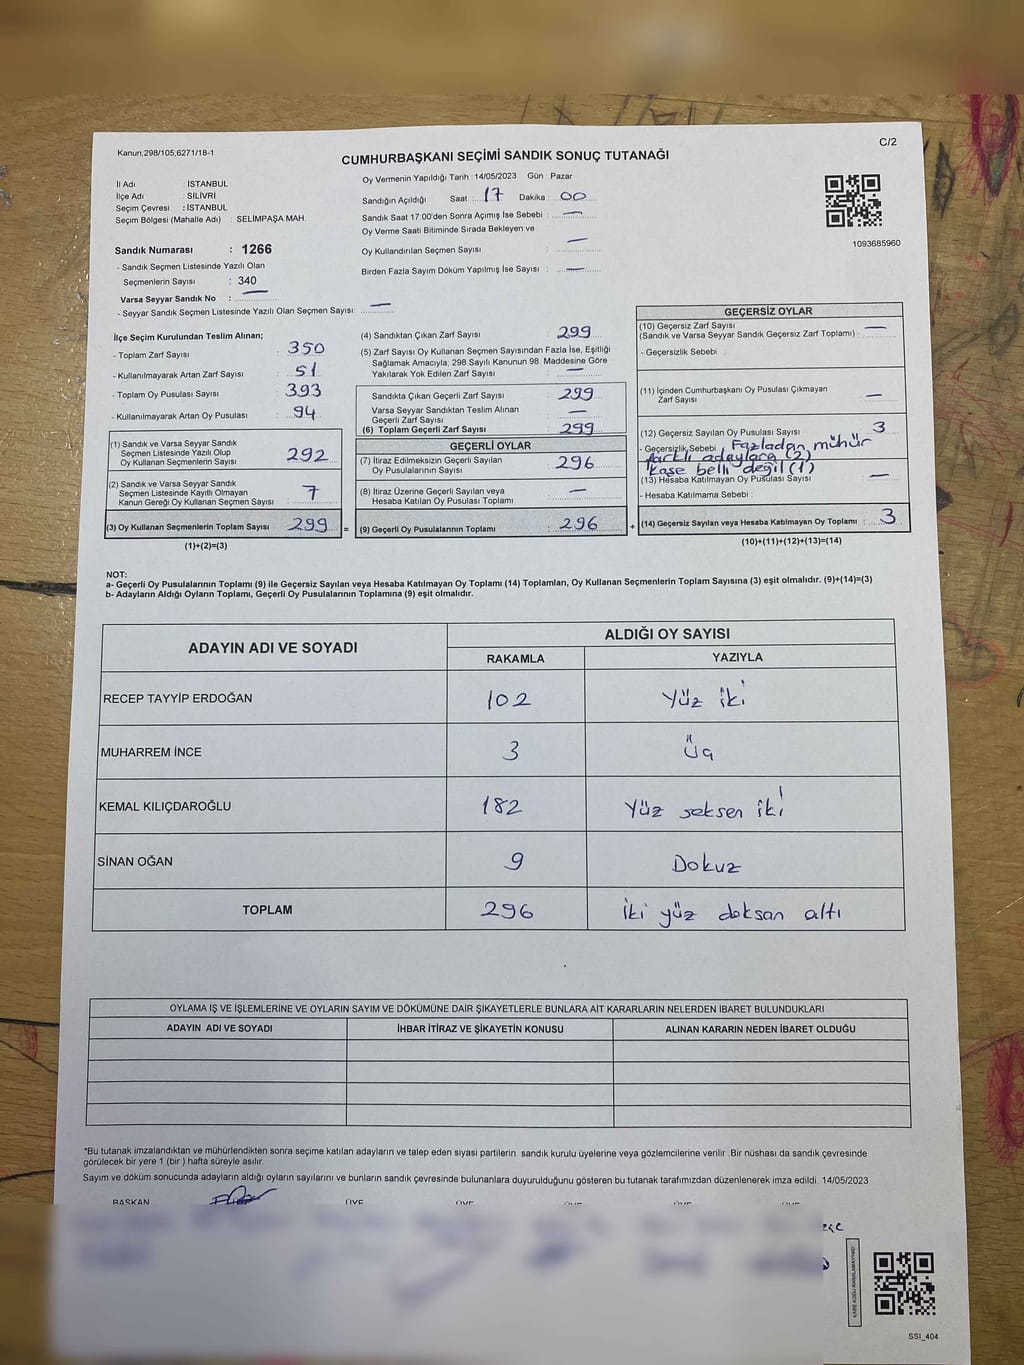 Kanun;298/105,6271/18-1
C/2
CUMHURBAŞKANI SEÇİMİ SANDIK SONUÇ TUTANAĞI
İl Adı : İSTANBUL
İlçe Adı : SİLİVRİ
Seçim Çevresi : İSTANBUL
Seçim Bölgesi (Mahalle Adı) : SELİMPAŞA MAH.
Sandık Numarası : 1266
- Sandık Seçmen Listesinde Yazılı Olan
Seçmenlerin Sayısı : 340
Varsa Seyyar Sandık No : —
- Seyyar Sandık Seçmen Listesinde Yazılı Olan Seçmen Sayısı: —
Oy Vermenin Yapıldığı Tarih :14/05/2023 Gün : Pazar
Sandığın Açıldığı Saat : 17 Dakika : 00
Sandık Saat 17:00'den Sonra Açımış İse Sebebi : —
Oy Verme Saati Bitiminde Sırada Bekleyen ve
Oy Kullandırılan Seçmen Sayısı : —
Birden Fazla Sayım Döküm Yapılmış İse Sayısı : —
1093685960
İlçe Seçim Kurulundan Teslim Alınan;
- Toplam Zarf Sayısı : 350
- Kullanılmayarak Artan Zarf Sayısı : 51
- Toplam Oy Pusulası Sayısı : 393
- Kullanılmayarak Artan Oy Pusulası : 94
(1) Sandık ve Varsa Seyyar Sandık
Seçmen Listesinde Yazılı Olup
Oy Kullanan Seçmenlerin Sayısı : 292
(2) Sandık ve Varsa Seyyar Sandık
Seçmen Listesinde Kayıtlı Olmayan
Kanun Gereği Oy Kullanan Seçmen Sayısı : 7
(3) Oy Kullanan Seçmenlerin Toplam Sayısı : 299 =
(1)+(2)=(3)
(4) Sandıktan Çıkan Zarf Sayısı : 299
(5) Zarf Sayısı Oy Kullanan Seçmen Sayısından Fazla İse, Eşitliği
Sağlamak Amacıyla; 298 Sayılı Kanunun 98. Maddesine Göre
Yakılarak Yok Edilen Zarf Sayısı : —
Sandıkta Çıkan Geçerli Zarf Sayısı : 299
Varsa Seyyar Sandıktan Teslim Alınan
Geçerli Zarf Sayısı : —
(6) Toplam Geçerli Zarf Sayısı : 299
GEÇERLİ OYLAR
(7) İtiraz Edilmeksizin Geçerli Sayılan
Oy Pusulalarının Sayısı : 296
(8) İtiraz Üzerine Geçerli Sayılan veya
Hesaba Katılan Oy Pusulası Toplamı : —
(9) Geçerli Oy Pusulalarının Toplamı : 296 +
GEÇERSİZ OYLAR
(10) Geçersiz Zarf Sayısı : —
(Sandık ve Varsa Seyyar Sandık Geçersiz Zarf Toplamı) :
- Geçersizlik Sebebi :
(11) İçinden Cumhurbaşkanı Oy Pusulası Çıkmayan
Zarf Sayısı : —
(12) Geçersiz Sayılan Oy Pusulası Sayısı : 3
- Geçersizlik Sebebi : Fazladan mühür
farklı adaylara (2)
kaşe belli değil (1)
(13) Hesaba Katılmayan Oy Pusulası Sayısı : —
- Hesaba Katılmama Sebebi :
(14) Geçersiz Sayılan veya Hesaba Katılmayan Oy Toplamı : 3
(10)+(11)+(12)+(13)=(14)
NOT:
a- Geçerli Oy Pusulalarının Toplamı (9) ile Geçersiz Sayılan veya Hesaba Katılmayan Oy Toplamı (14) Toplamları, Oy Kullanan Seçmenlerin Toplam Sayısına (3) eşit olmalıdır. (9)+(14)=(3)
b- Adayların Aldığı Oyların Toplamı, Geçerli Oy Pusulalarının Toplamına (9) eşit olmalıdır.
ADAYIN ADI VE SOYADI
ALDIĞI OY SAYISI
RAKAMLA YAZIYLA
RECEP TAYYİP ERDOĞAN 102 Yüz iki
MUHARREM İNCE 3 Üç
KEMAL KILIÇDAROĞLU 182 Yüz seksen iki
SİNAN OĞAN 9 Dokuz
TOPLAM 296 İki yüz doksan altı
OYLAMA İŞ VE İŞLEMLERİNE VE OYLARIN SAYIM VE DÖKÜMÜNE DAİR ŞİKAYETLERLE BUNLARA AİT KARARLARIN NELERDEN İBARET BULUNDUKLARI
ADAYIN ADI VE SOYADI İHBAR İTİRAZ VE ŞİKAYETİN KONUSU ALINAN KARARIN NEDEN İBARET OLDUĞU
*Bu tutanak imzalandıktan ve mühürlendikten sonra seçime katılan adayların ve talep eden siyasi partilerin sandık kurulu üyelerine veya gözlemcilerine verilir .Bir nüshası da sandık çevresinde
görülecek bir yere 1 (bir ) hafta süreyle asılır.
Sayım ve döküm sonucunda adayların aldığı oyların sayılarını ve bunların sandık çevresinde bulunanlara duyurulduğunu gösteren bu tutanak tarafımızdan düzenlenerek imza edildi. 14/05/2023
BAŞKAN ÜYE ÜYE ÜYE ÜYE ÜYE
KARE KODU KARALAMAYINIZ!
SSI_404